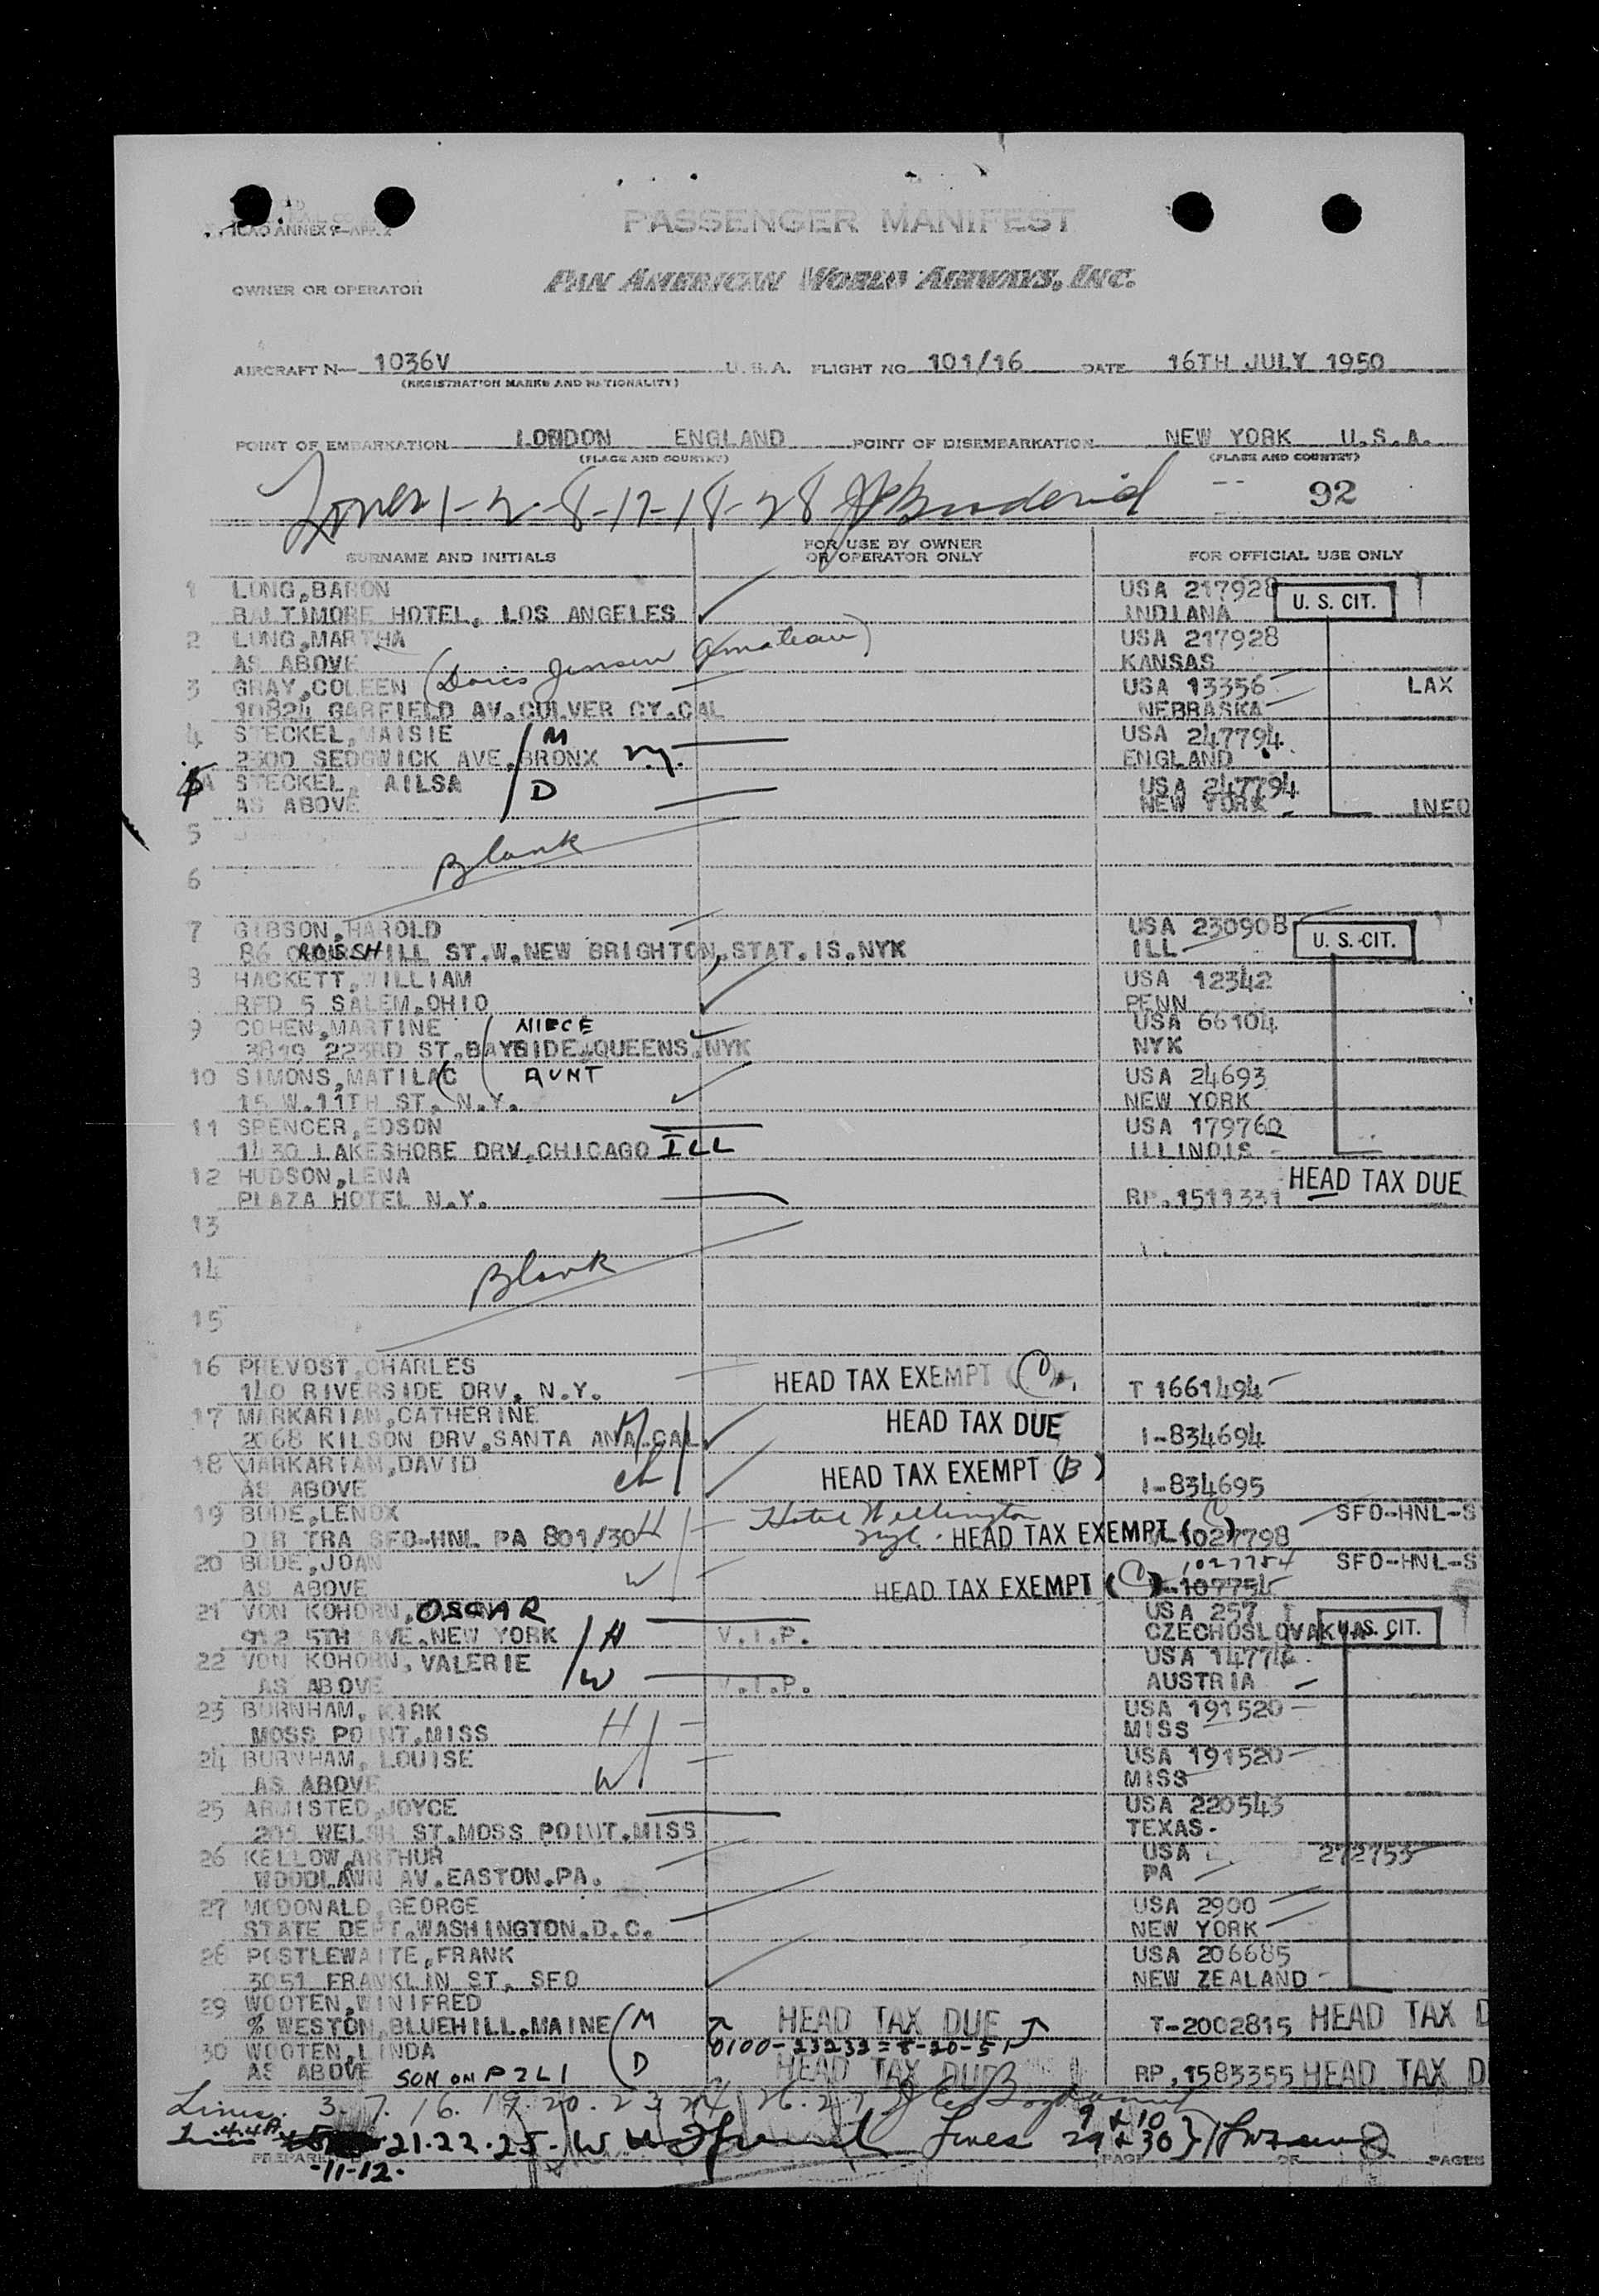 ICAO ANNEX 9-APP. 2
PASSENGER MANIFEST
OWNER OR OPERATOR PAN AMERICAN WORLD AIRWAYS, INC.
AIRCRAFT N— 1036V U. S. A. FLIGHT NO. 101/16 DATE 16TH JULY 1950
(REGISTRATION MARKS AND NATIONALITY)
POINT OF EMBARKATION LONDON ENGLAND POINT OF DISEMBARKATION NEW YORK U.S.A.
(PLACE AND COUNTRY) (PLACE AND COUNTRY)
1-2-8-17-18-28 -- 92
SURNAME AND INITIALS FOR USE BY OWNER OR OPERATOR ONLY FOR OFFICIAL USE ONLY
1 LONG,BARON USA 217928 U. S. CIT.
BALTIMORE HOTEL, LOS ANGELES INDIANA
2 LONG,MARTHA USA 217928
AS ABOVE KANSAS
3 GRAY,COLEEN (Doris Jensen Amateau) USA 13356 LAX
10824 GARFIELD AV.CULVER CY.CAL NEBRASKA
4 STECKEL,MAISIE M USA 247794
2800 SEDGWICK AVE,BRONX N.Y. ENGLAND
4A STECKEL, AILSA D USA 247794
AS ABOVE NEW YORK INFO
5
Blank
6
7 GIBSON,HAROLD USA 230908 U. S. CIT.
86 ROSSHILL ST.W.NEW BRIGHTON,STAT.IS.NYK ILL
8 HACKETT,WILLIAM USA 12342
RFD 5 SALEM,OHIO PENN
9 COHEN,MARTINE NIECE USA 66104
3819 223RD ST.BAYSIDE,QUEENS,NYK NYK
10 SIMONS,MATILAC AUNT USA 24693
15 W.11TH ST. N.Y. NEW YORK
11 SPENCER,EDSON USA 179760
1430 LAKESHORE DRV,CHICAGO ILL ILLINOIS
12 HUDSON,LENA HEAD TAX DUE
PLAZA HOTEL N.Y. RP.1511331
13
14 Blank
15
16 PREVOST,CHARLES HEAD TAX EXEMPT
140 RIVERSIDE DRV. N.Y. T 1661494
17 MARKARIAN,CATHERINE M HEAD TAX DUE
2068 KILSON DRV,SANTA ANA,CAL I-834694
18 MARKARIAM,DAVID ch HEAD TAX EXEMPT (B)
AS ABOVE I-834695
19 BODE,LENOX H Hotel Wellington SFO-HNL-S
DIR TRA SFO-HNL PA 801/30 nyc. HEAD TAX EXEMPT (C) 1027798
20 BODE,JOAN W 1027754 SFO-HNL-S
AS ABOVE HEAD TAX EXEMPT (C) 107754
21 VON KOHORN,OSCAR USA 257
912 5TH AVE.NEW YORK H V.I.P. CZECHOSLOVAKIA U. S. CIT.
22 VON KOHORN, VALERIE USA 14774
AS ABOVE W V.I.P. AUSTRIA
23 BURNHAM, KIRK H USA 191520
MOSS POINT.MISS MISS
24 BURNHAM, LOUISE USA 191520
AS ABOVE W MISS
25 ARMISTED,JOYCE USA 220543
205 WELSH ST.MOSS POINT.MISS TEXAS
26 KELLOW,ARTHUR USA 272753
WOODLAWN AV.EASTON.PA. PA
27 MCDONALD,GEORGE USA 2900
STATE DEPT.WASHINGTON.D.C. NEW YORK
28 POSTLEWAITE,FRANK USA 206685
3051 FRANKLIN ST. SFO NEW ZEALAND
29 WOOTEN,WINIFRED
% WESTON,BLUEHILL.MAINE M HEAD TAX DUE T-2002815 HEAD TAX D
30 WOOTEN,LINDA 0100-23232=8-20-51
AS ABOVE SON ON P2L1 D HEAD TAX DUE RP.1583355 HEAD TAX D
Lines. 3. 7. 16. 19. 20. 23 24 26. 27
Lines 4.4A 21.22.25. Lines 9 & 10
29 & 30
PREPARED PAGE OF PAGES
-11-12.